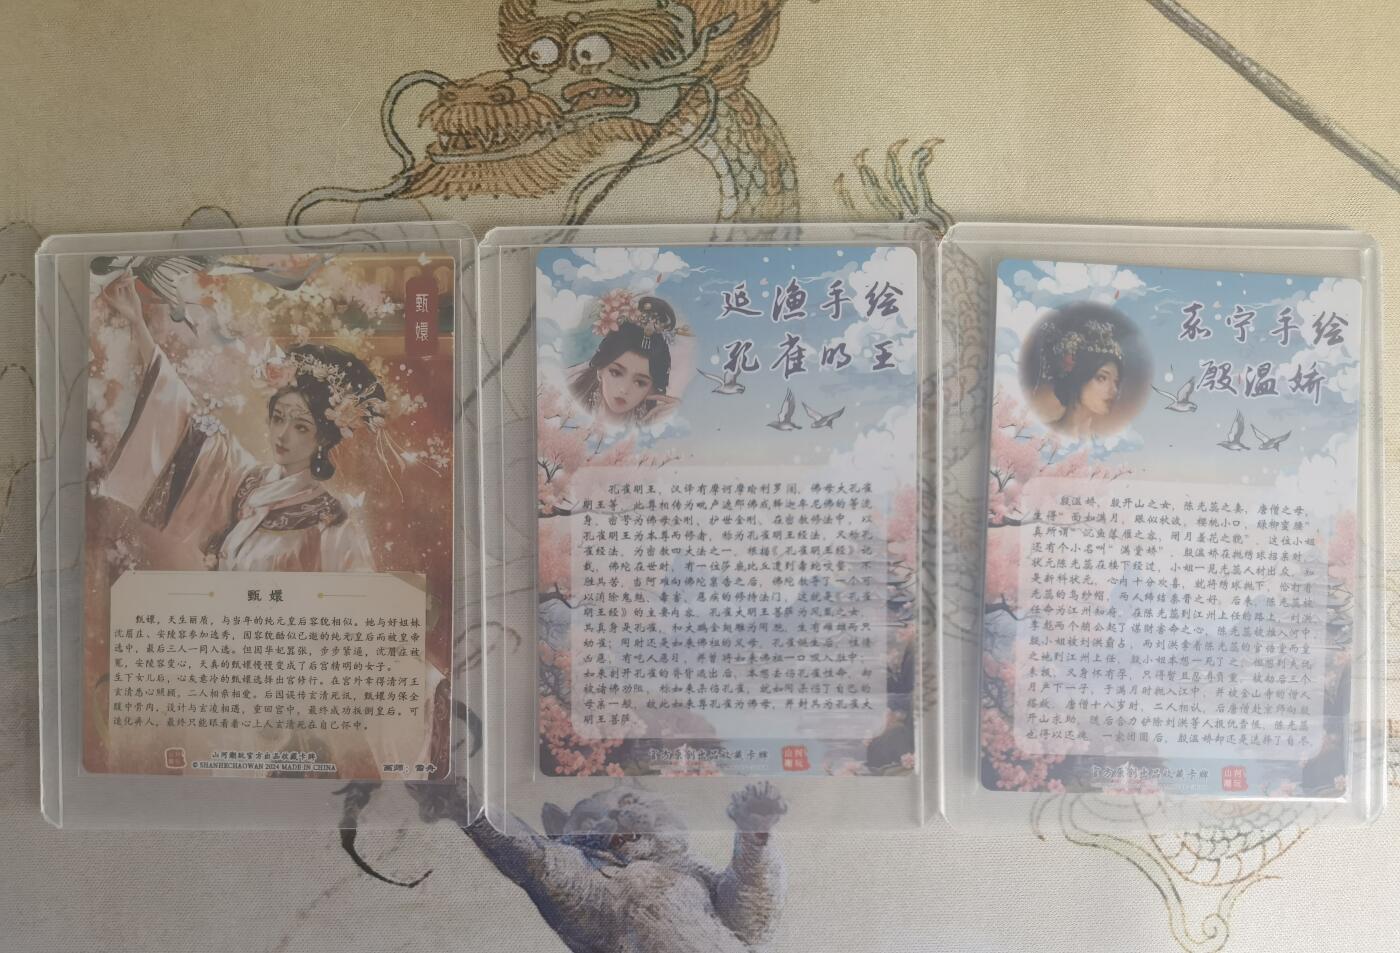 甄
嬛
甄 嬛
甄嬛，天生丽质，与当年的纯元皇后容貌相似。她与好姐妹
沈眉庄、安陵容参加选秀，因容貌酷似已逝的纯元皇后而被皇帝
选中，最后三人一同入选。但因华妃嚣张，步步紧逼，沈眉庄被
冤，安陵容变心，天真的甄嬛慢慢变成了后宫精明的女子。
生下女儿后，心灰意冷的甄嬛选择出宫修行。在宫外幸得清河王
玄清悉心照顾，二人相亲相爱。后因误传玄清死讯，甄嬛为保全
腹中骨肉，设计与玄凌相遇，重回宫中，最终成功扳倒皇后。可
造化弄人，最终只能眼看着心上人玄清死在自己怀中。
山河潮玩官方出品收藏卡牌
© SHANHECHAOWAN 2024 MADE IN CHINA
画师：雷舟
延渔手绘
孔雀明王
孔雀明王，汉译有摩诃摩瑜利罗阇，佛母大孔雀
明王等，此尊相传为毗卢遮那佛或释迦牟尼佛的等流
身，密号为佛母金刚、护世金刚，在密教修法中，以
孔雀明王为本尊而修者，称为孔雀明王经法，又称孔
雀经法，为密教四大法之一，根据《孔雀明王经》记
载，佛陀在世时，有一位莎底比丘遭到毒蛇咬螫，不
胜其苦，当阿难向佛陀禀告之后，佛陀教导了一个可
以消除鬼魅、毒害、恶疾的修持法门，这就是《孔雀
明王经》的主要内容，孔雀大明王菩萨为凤凰之女，
其真身是孔雀，和大鹏金翅雕为同胞，生有雌雄两只
幼雀；同时还是如来佛祖的父母，孔雀诞生后，性情
凶恶，有吃人恶习，并曾将如来佛祖一口吸入肚中；
如来剖开孔雀的脊背逃出后，本想去伤孔雀性命，却
被诸佛劝阻，称如来杀伤孔雀，就如同杀伤了自己的
母亲一般，故此如来尊孔雀为佛母，并封其为孔雀大
明王菩萨
官方原创出品收藏卡牌
山河
潮玩
亦宁手绘
殷温娇
殷温娇，殷开山之女，陈光蕊之妻，唐僧之母，
生得“面如满月，眼似秋波，樱桃小口，绿柳蛮腰”
真所谓“沉鱼落雁之容，闭月羞花之貌”，这位小姐
还有个小名叫“满堂娇”，殷温娇在抛绣球招亲时，
状元陈光蕊在楼下经过，小姐一见光蕊人材出众，知
是新科状元，心内十分欢喜，就将绣球抛下，恰打着
光蕊的乌纱帽，两人缔结秦晋之好，后来，陈光蕊被
任命为江州知府，在陈光蕊到江州上任的路上，刘洪
李彪两个艄公起了谋财害命之心，陈光蕊被推入河中，
殷小姐被刘洪霸占，而刘洪拿着陈光蕊的官诰重而重
之地到江州上任，殷小姐本想一死了之，但想到夫仇
未报，又身怀有孕，只得暂且忍辱负重，被劫后三个
月产下一子，于满月时抛入江中，并被金山寺的僧人
搭救，唐僧十八岁时，二人相认，后唐僧赴京师向殷
开山求助，随后合力铲除刘洪等人报仇雪恨，陈光蕊
也得以还魂，一家团圆后，殷温娇却还是选择了自尽
官方原创出品收藏卡牌
山河
潮玩